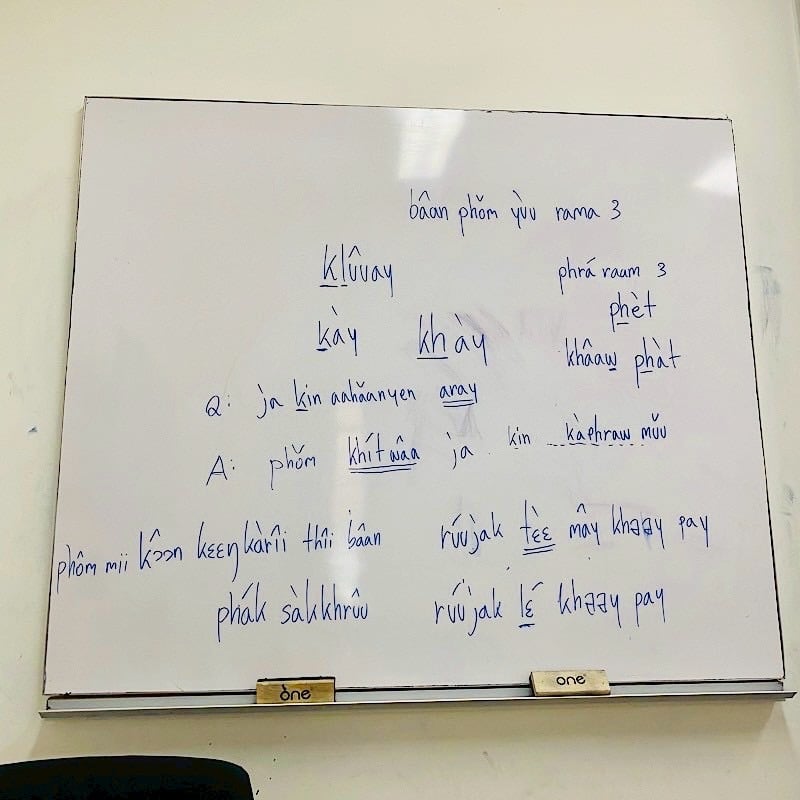 bâan phǒm yùu rama 3
klûuay
phrá raam 3
phèt
kày khày
khâaw phàt
Q: ja kin aahǎanyen aray
A: phǒm khít wâa ja kin kàphraw mǔu
phôm mii kɔ̂ɔn kɛɛŋkàrîi thîi bâan
rúujak tɛ̀ɛ mây khəəy pay
phák sàkkhrûu
rúujak lɛ́ khəəy pay
one
one